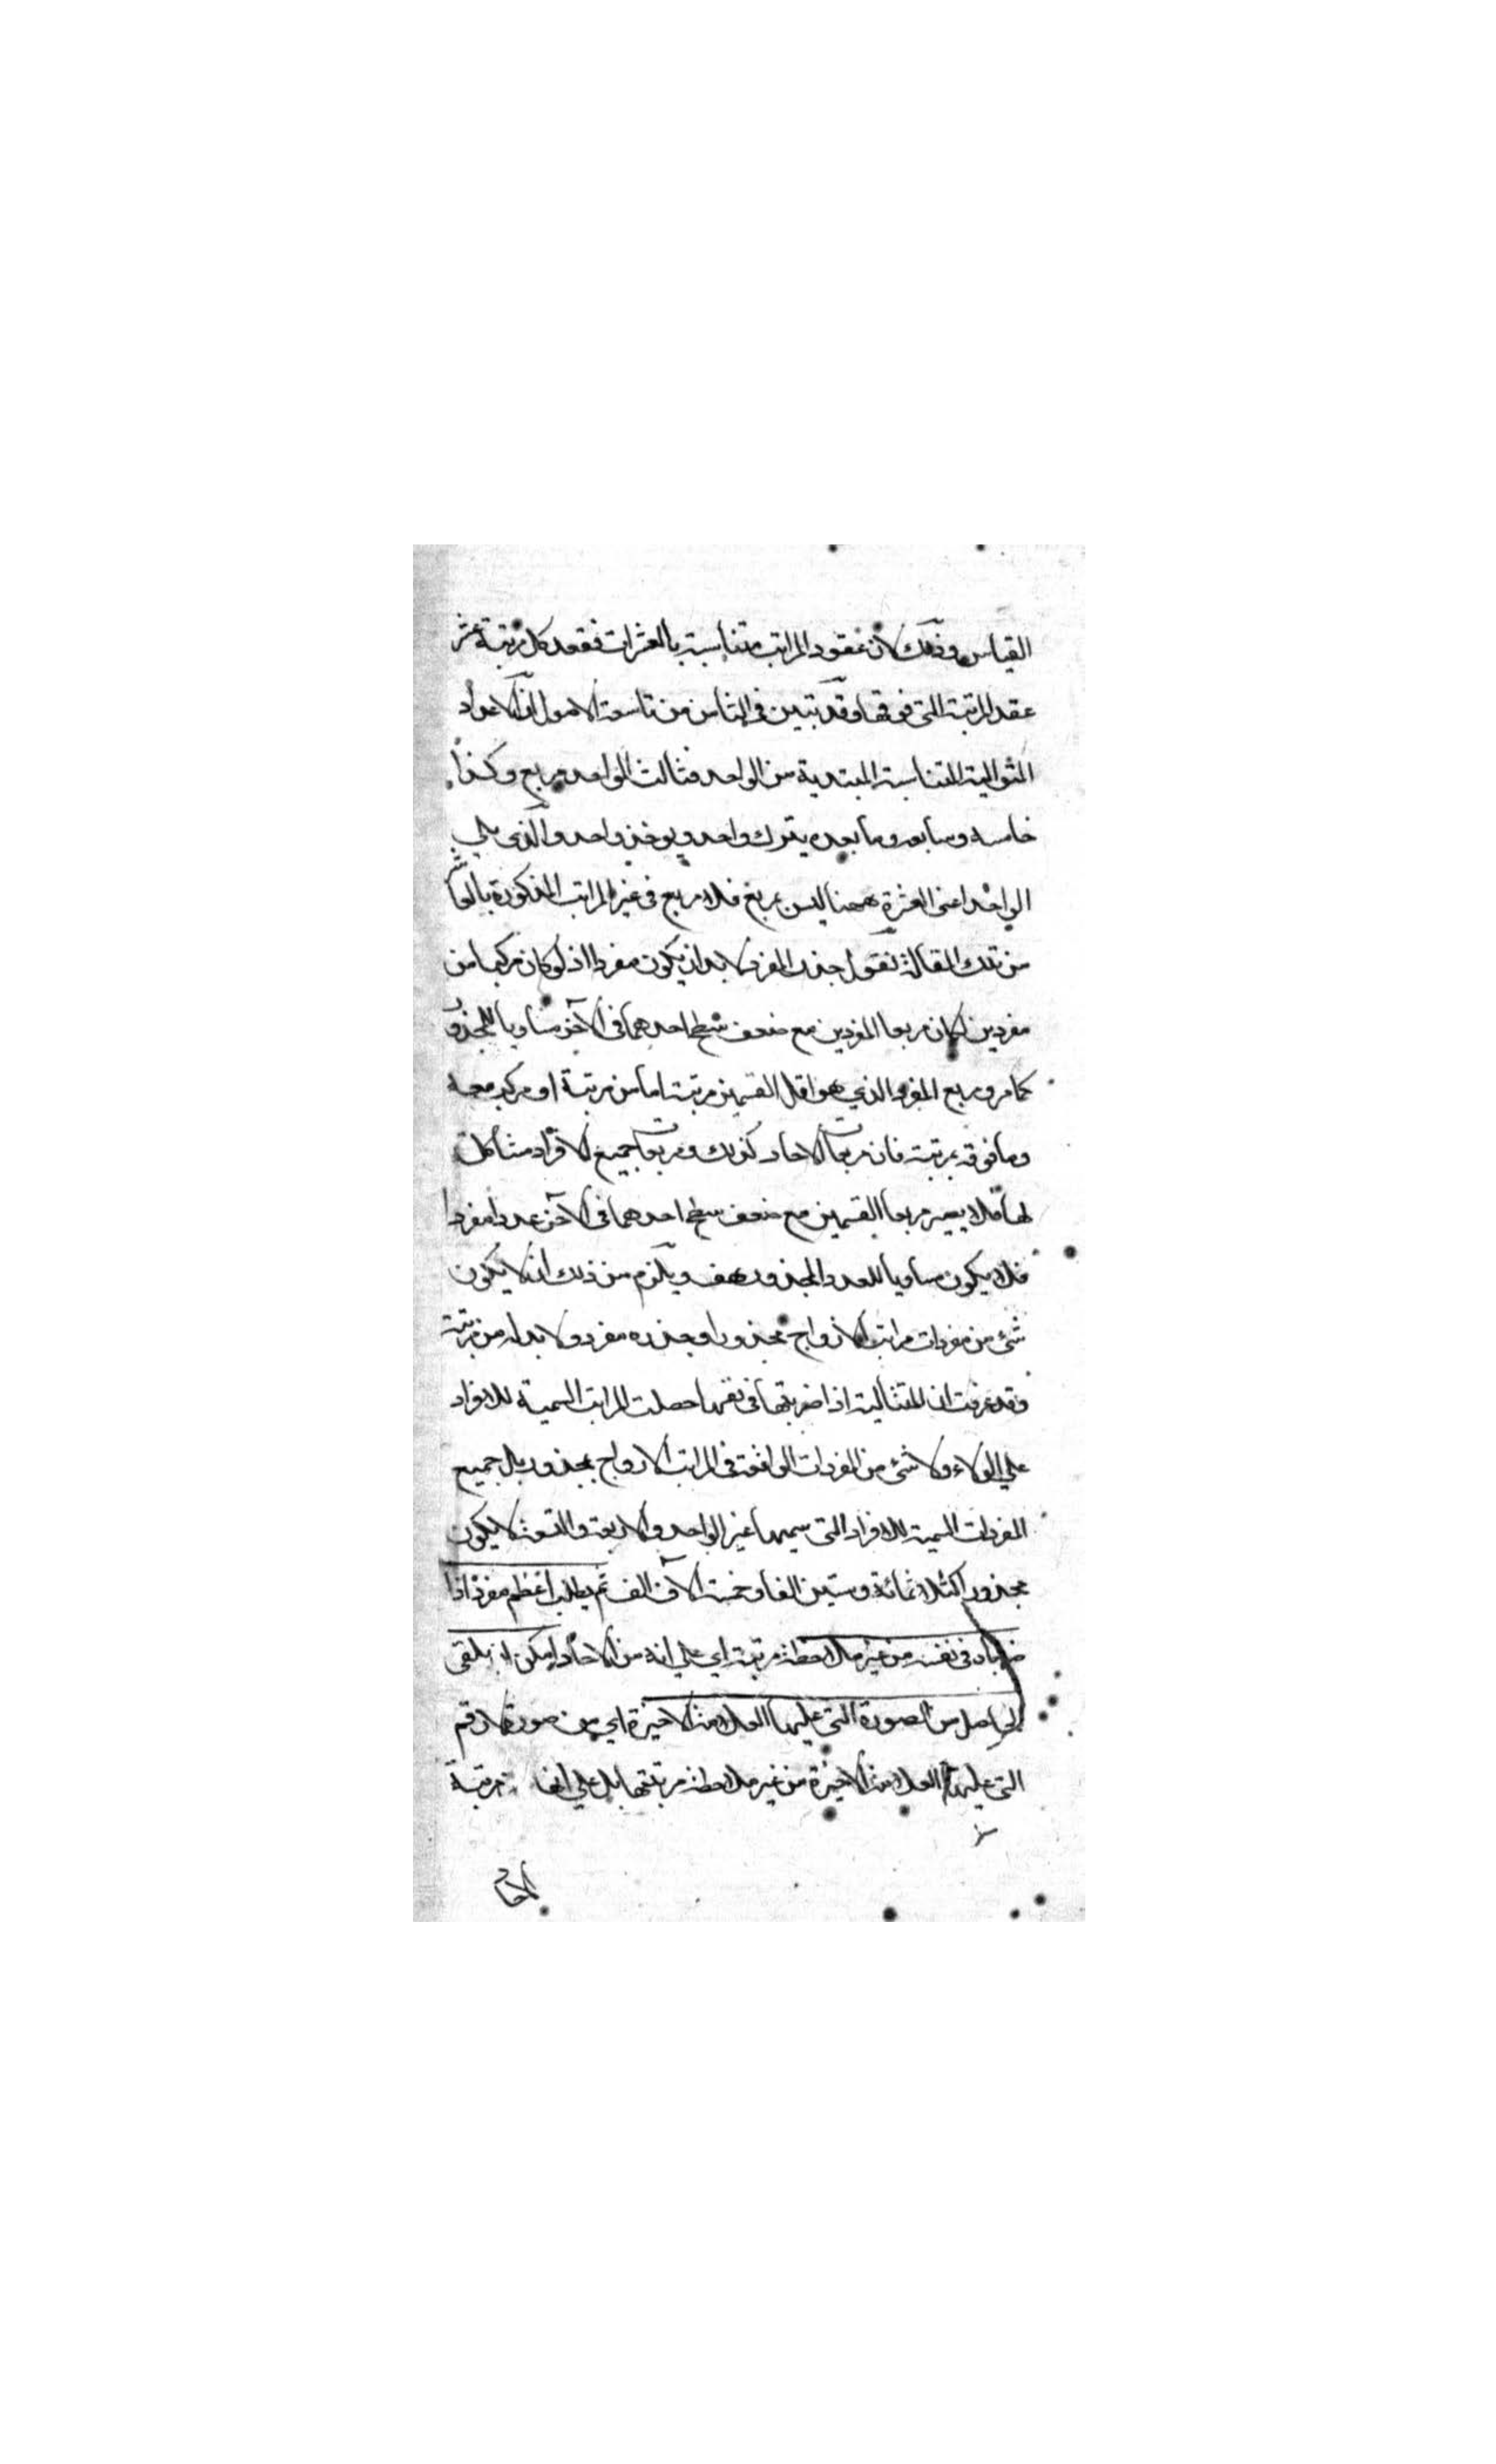 القياس وذلك لان عقود المراتب متناسبة بالعشرات فعقد كل مرتبة عشر
عقد المرتبة التى فوقها وقد تبين فى الثامن من تاسعة الاصول ان الاعداد
المتوالية المتناسبة المبتدية من الواحد فثالث الواحد مربع وكذا
خامسه وسابعه وما بعده يترك واحد ويوخذ واحد والذى يلى
الواحد اعنى العشرة ههنا ليس بمربع فلا مربع فى غير المراتب المذكورة بالعاشر
من تلك المقالة نقول جذر المفرد لا بد ان يكون مفردا اذ لو كان مركبا من
مفردين لكان مربعا المفردين مع ضعف سطح احدهما فى الآخر مساويا للمجذور
كما مر ومربع المفرد الذي هو اقل القسمين مرتبة اما من مرتبة او مركب معه
وما فوقه بمرتبة فان مربعات الاحاد كذلك ومربعات جميع الافراد مشاكلة
لها فلا يصير مربعا القسمين مع ضعف سطح احدهما فى الآخر عددا مفردا
فلا يكون مساويا للعدد المجذور هف ويلزم من ذلك ان لا يكون
شئ من مفردات مراتب الازواج بمجذور اذ جذره مفرد ولا بد له من مرتبة
وقد عرفت ان المتتالية اذا ضربتها فى نفسها حصلت المراتب السمية للافراد
على الولاء ولا شئ من المفردات الواقعة فى المراتب الازواج بمجذور بل جميع
المفردات السمية للافراد التى سميها غير الواحد والاربعة والتسعة لا يكون
بمجذور كثلاثمائة وستين الفا وخمسة آلاف الف ثم يطلب اعظم مفرد اذا
ضرب فى نفسه من غير ملاحظة مرتبة اي على انه من الاحاد امكن ان يلقى
الحاصل من الصورة التى عليها العلامة الاخيرة اي من صورة الرقم
التى عليها العلامة الاخيرة من غير ملاحظة مرتبتها بل على انها مرتبة
الآحاد